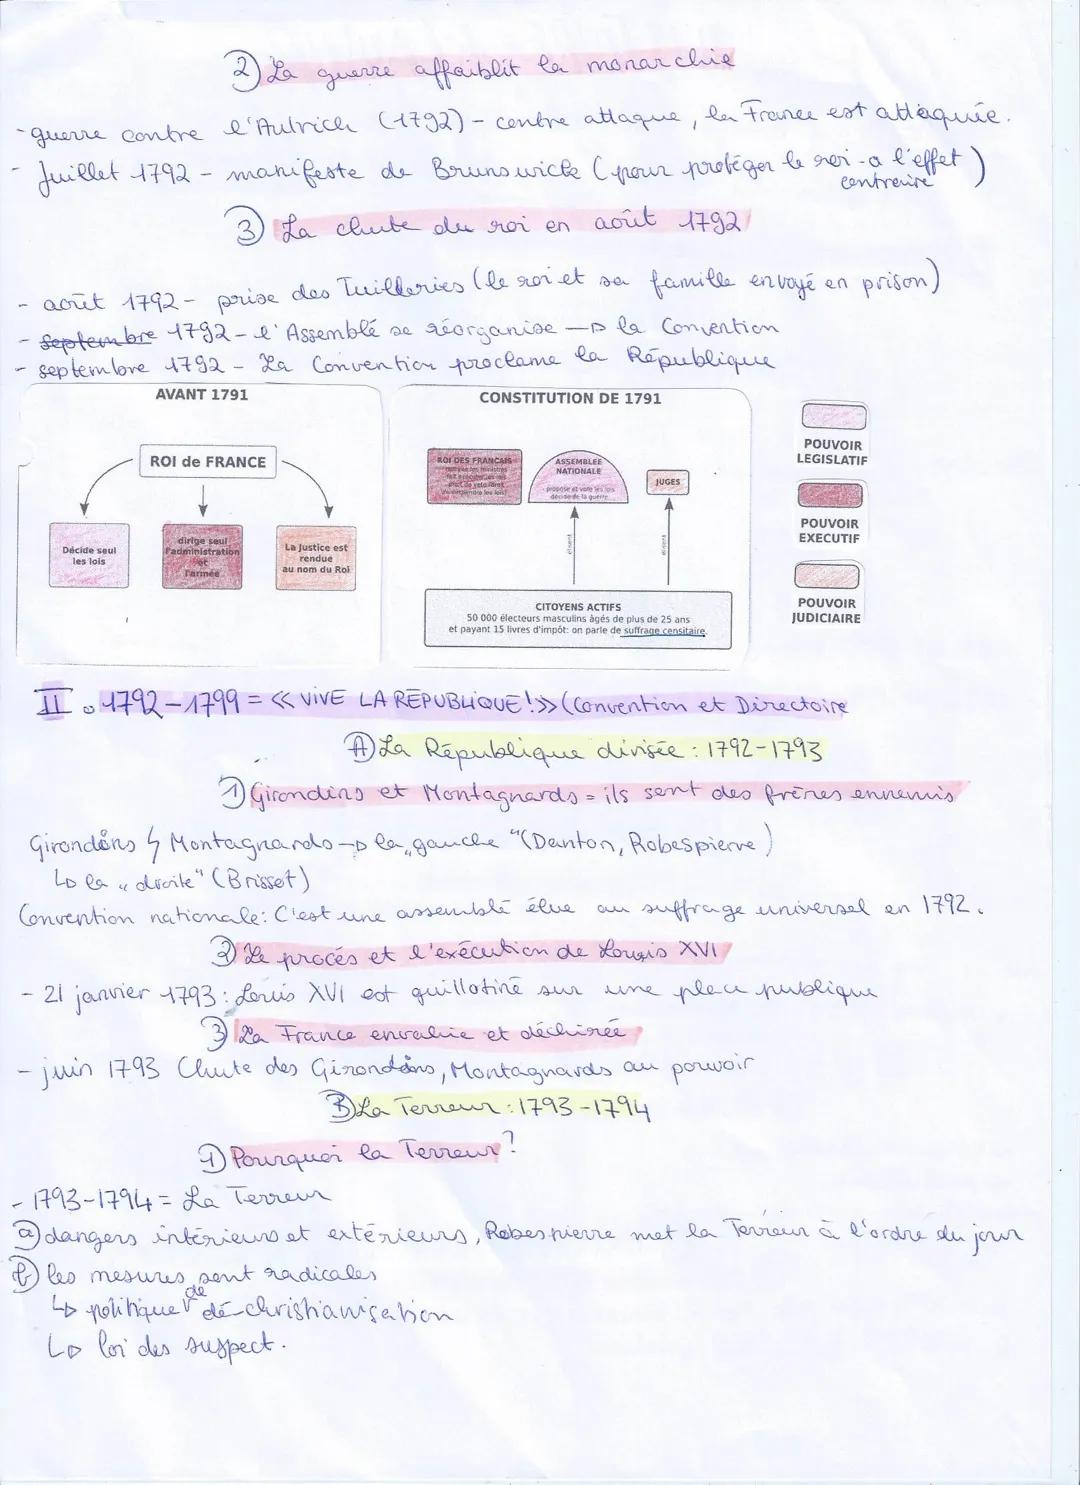 2) La guerre affaiblit la monarchie
- guerre contre l'Autrich (1792) - contre attaque, la France est attaquée.
- Juillet 1792 - manifeste de Brunswick (pour protéger le roi - a l'effet contraire)
3) La chute du roi en août 1792
- août 1792 - prise des Tuilleries (le roi et sa famille envoyé en prison)
- septembre 1792 - l'Assemblé se réorganise → la Convention
- septembre 1792 - La Convention proclame la République
AVANT 1791
ROI de FRANCE
Décide seul
les lois
dirige seul
l'administration
et
l'armée
La Justice est
rendue
au nom du Roi
CONSTITUTION DE 1791
ROI DES FRANCAIS
nomme les ministres
ASSEMBLEE
NATIONALE
propose et vote les lois
décide de la guerre
JUGES
élisent
élisent
CITOYENS ACTIFS
50 000 électeurs masculins âgés de plus de 25 ans
et payant 15 livres d'impôt: on parle de suffrage censitaire.
POUVOIR
LEGISLATIF
POUVOIR
EXECUTIF
POUVOIR
JUDICIAIRE
II. 1792-1799 = << VIVE LA RÉPUBLIQUE! >> (Convention et Directoire
A) La République divisée : 1792-1793
1) Girondins et Montagnards = ils sont des frères ennemis
Girondins ϟ Montagnards → la „gauche" (Danton, Robespierre)
↳ la „droite" (Brisset)
Convention nationale: C'est une assemblé élue au suffrage universel en 1792.
2) Le procés et l'exécution de Louis XVI
- 21 janvier 1793 : Louis XVI est guillotiné sur une place publique
3) La France envahie et déchirée
- juin 1793 Chute des Girondins, Montagnards au pouvoir
B) La Terreur : 1793-1794
1) Pourquoi la Terreur?
- 1793-1794 = La Terreur
a) dangers intérieurs et extérieurs, Robespierre met la Terreur à l'ordre du jour
b) les mesures sont radicales
↳ politique de dé-christianisation
↳ loi des suspect.